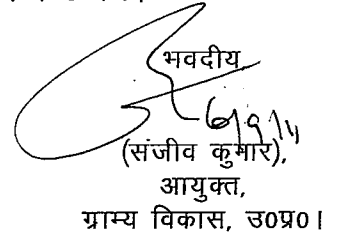 भवदीय
6/9/11
(संजीव कुमार),
आयुक्त,
ग्राम्य विकास, उ0प्र0।